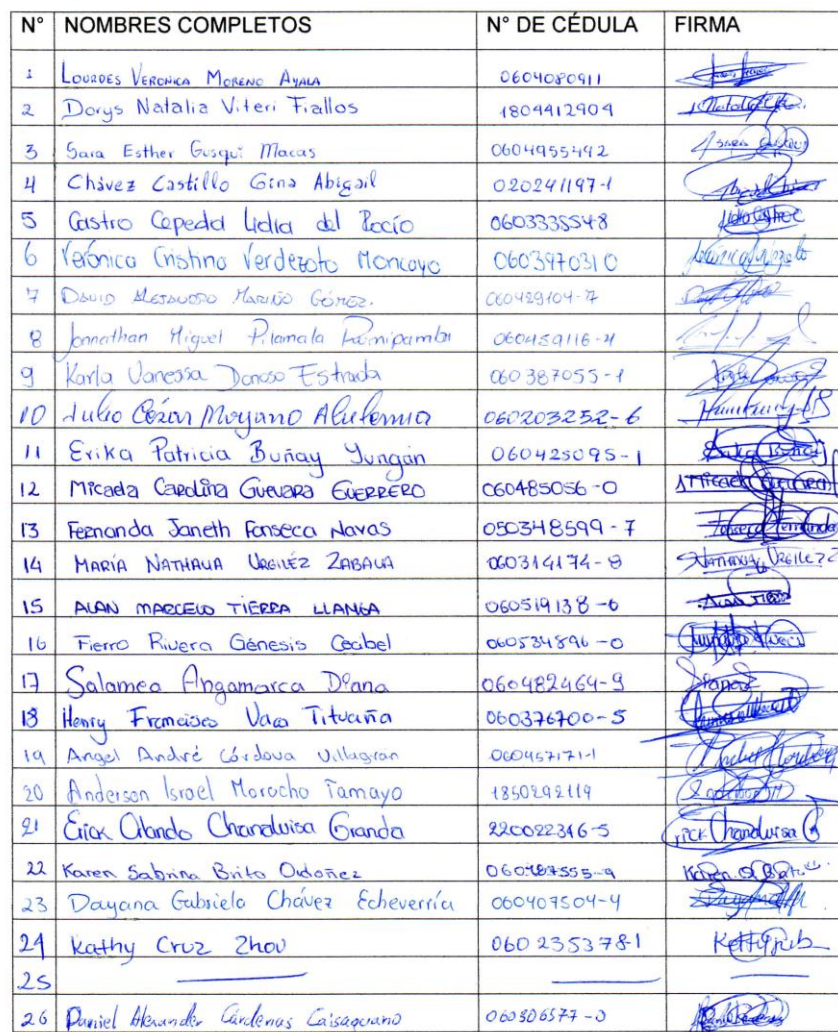 N° NOMBRES COMPLETOS N° DE CÉDULA FIRMA
1 LOURDES VERONICA MORENO AYALA 0604080911
2 Dorys Natalia Viteri Fiallos 1804412904
3 Sara Esther Gusqui Macas 0604955492
4 Chávez Castillo Gina Abigail 020241197-1
5 Castro Cepeda Lidia del Rocío 0603335548
6 Verónica Cristina Verdezoto Moncayo 0603970310
7 DAVID ALEJANDRO MARIÑO GÓMEZ. 060489104-7
8 Jonnathan Miguel Pilamala 060459116-4
9 Karla Vanessa Donoso Estrada 060387055-1
10 Julio César Moyano Alulema 060203252-6
11 Erika Patricia Buñay Yungán 060425095-1
12 MICAELA CAROLINA GUEVARA GUERRERO 060485056-0
13 Fernanda Janeth Fonseca Navas 050348599-7
14 MARÍA NATHALIA URGILÉZ ZABALA 060314174-8 NATHALIA URGILEZ Z
15 ALAN MARCELO TIERRA LLANGA 060519138-6
16 Fierro Rivera Génesis Cecibel 060534896-0
17 Salamea Angamarca Diana 060482464-9
18 Henry Francisco Vaca Tituaña 060376700-5
19 Angel André Córdova Villagran 060457171-1
20 Anderson Israel Morocho Tamayo 1850292119
21 Erick Orlando Chanaluisa Granda 220022346-5
22 Karen Sabrina Brito Ordoñez
23 Dayana Gabriela Chávez Echeverría 060407504-4
24 Kathy Cruz Zhou 060235378-1
25
26 Daniel Alexander Cárdenas Caisaguano 060306577-0